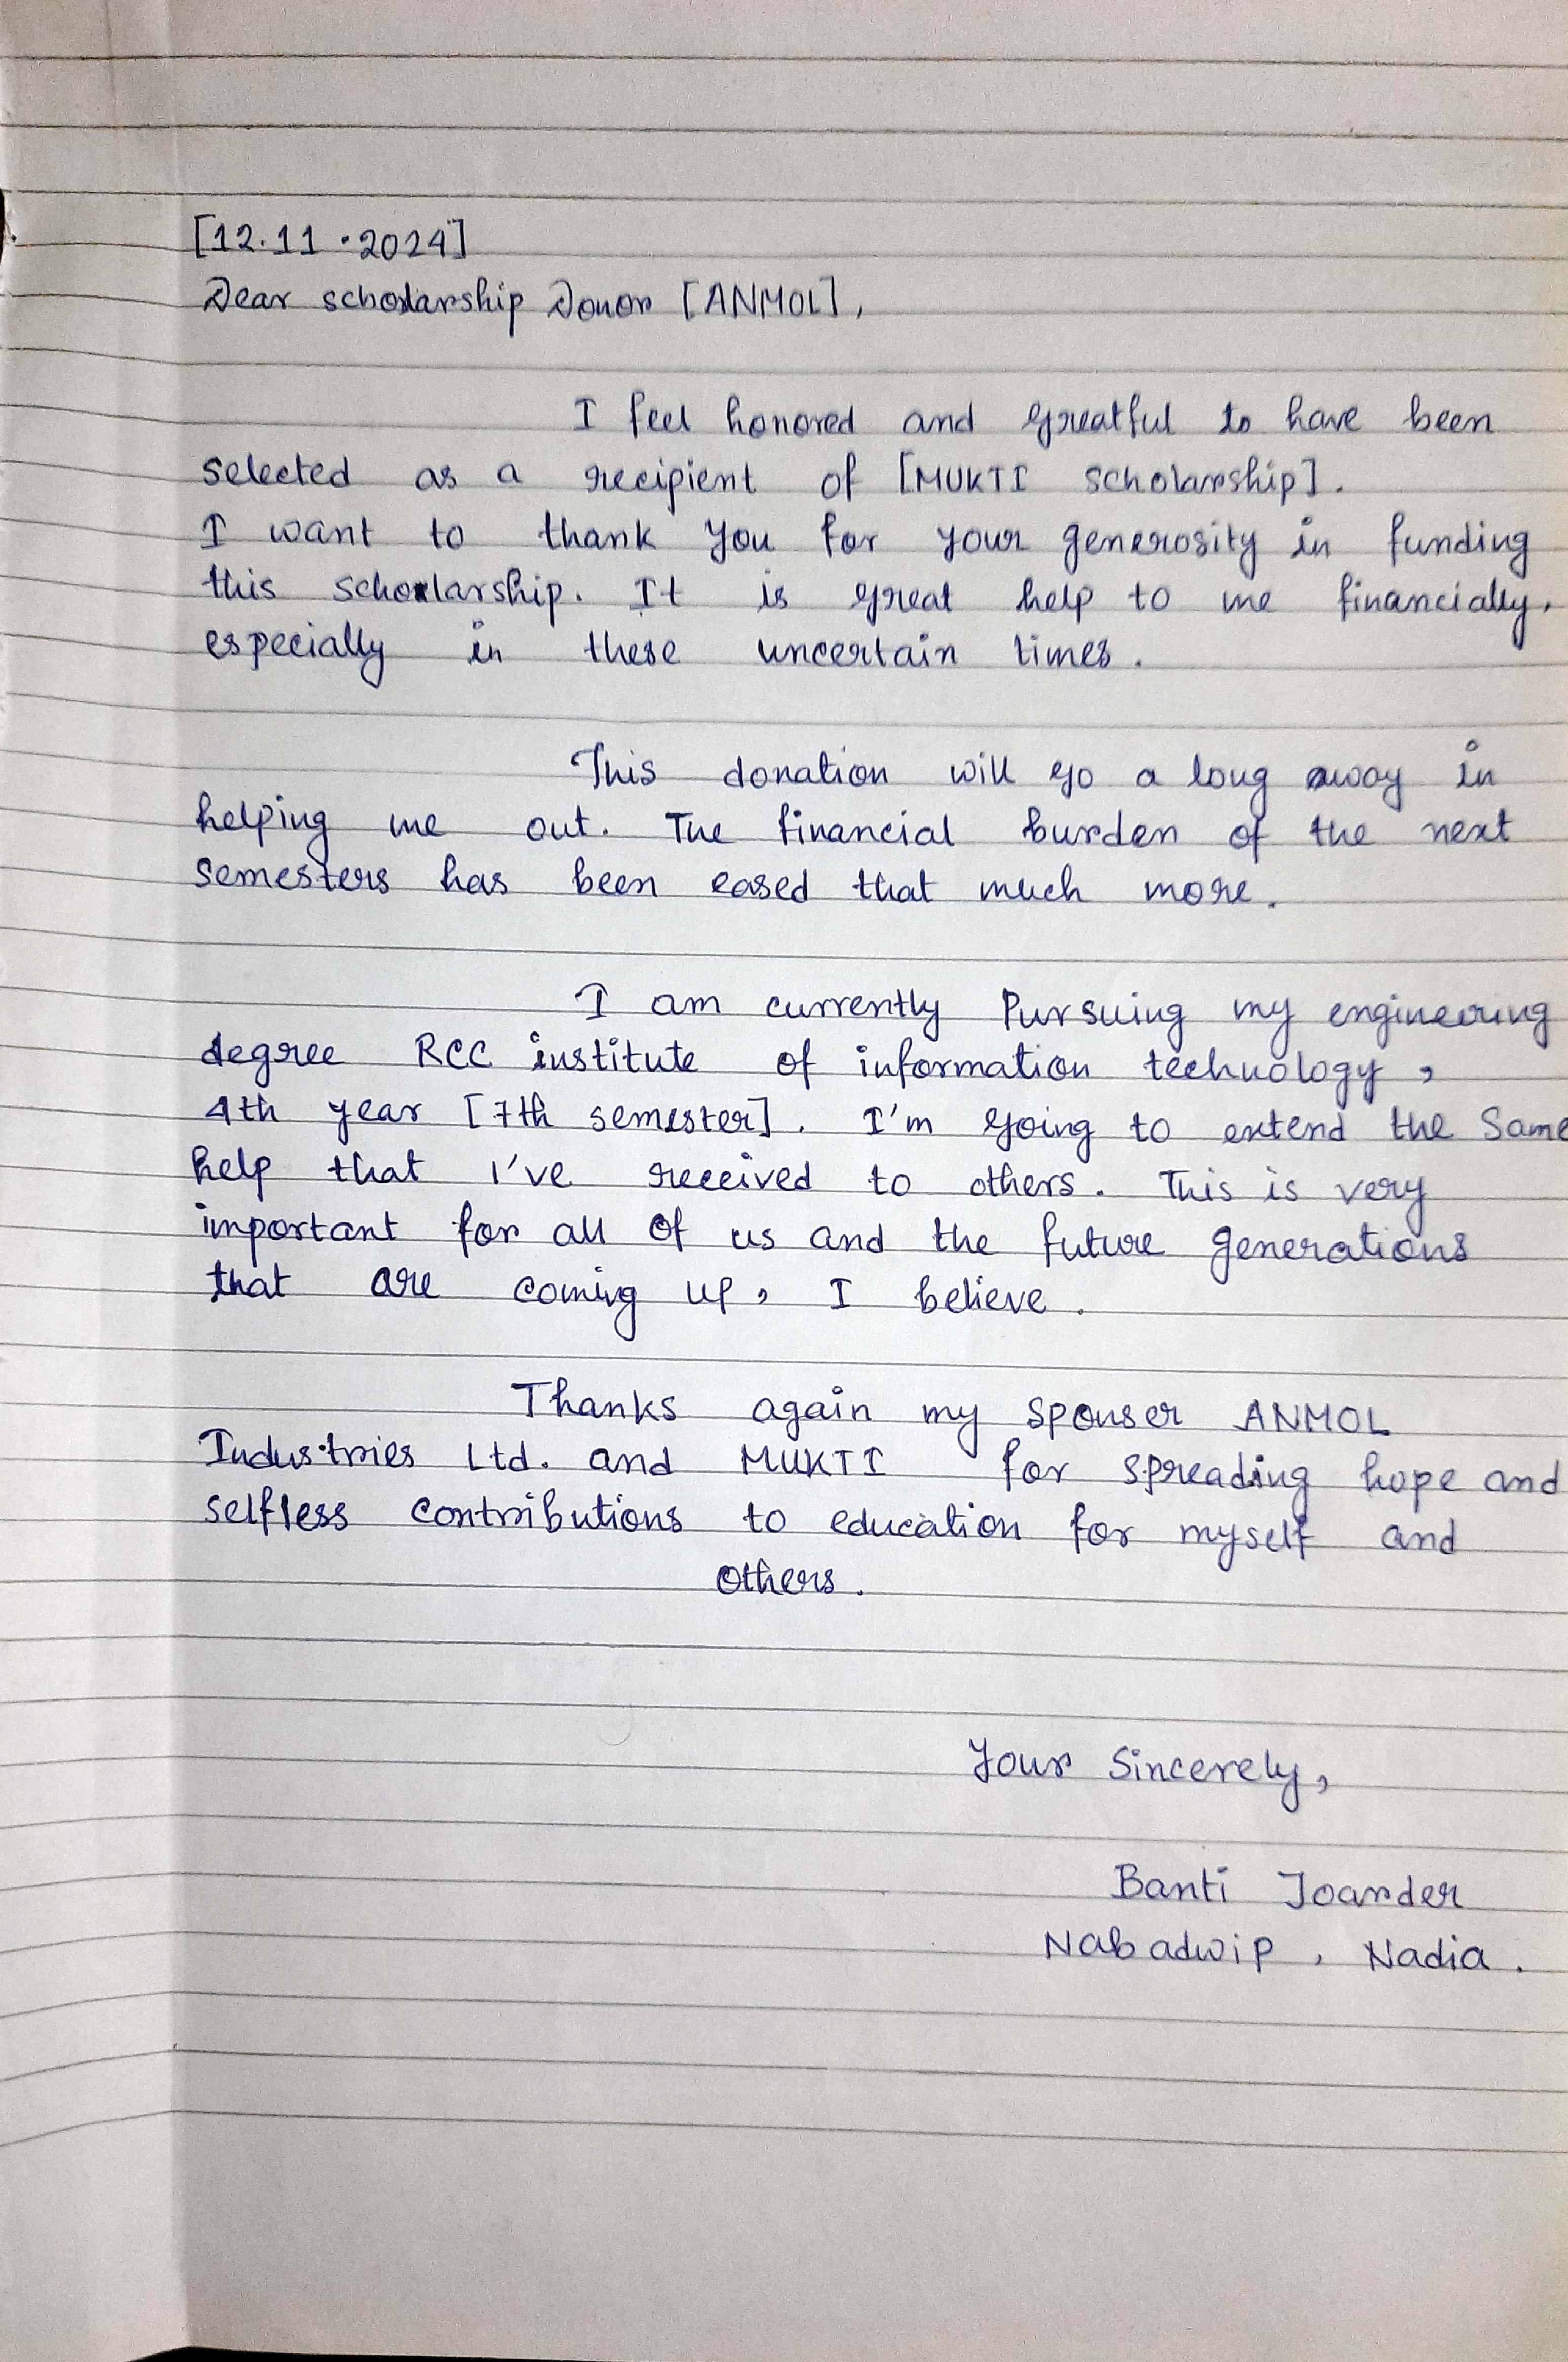 [12.11.2024]
Dear scholarship Donor [ANMOL],
I feel honored and greatful to have been
selected as a recipient of [MUKTI scholarship].
I want to thank you for your generosity in funding
this scholarship. It is great help to me financially,
especially in these uncertain times.
This donation will go a long away in
helping me out. The financial burden of the next
semesters has been eased that much more.
I am currently Pursuing my engineering
degree RCC institute of information technology,
4th year [7th semester]. I'm going to extend the same
help that I've received to others. This is very
important for all of us and the future generations
that are coming up, I believe.
Thanks again my sponser ANMOL
Industries Ltd. and MUKTI for spreading hope and
selfless contributions to education for myself and
others.
Your Sincerely,
Banti Joarder
Nabadwip, Nadia.